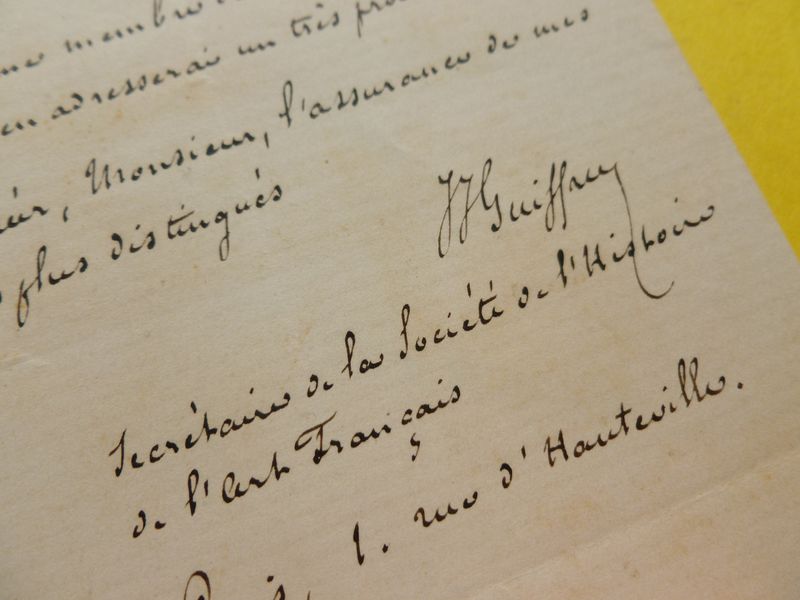 membre
en adresserai un très
, Monsieur, l'assurance de mes
plus distingués
JJ Guiffrey
Secrétaire de la Société de l'Histoire
de l'Art Français
Paris, 1. rue d'Hauteville.